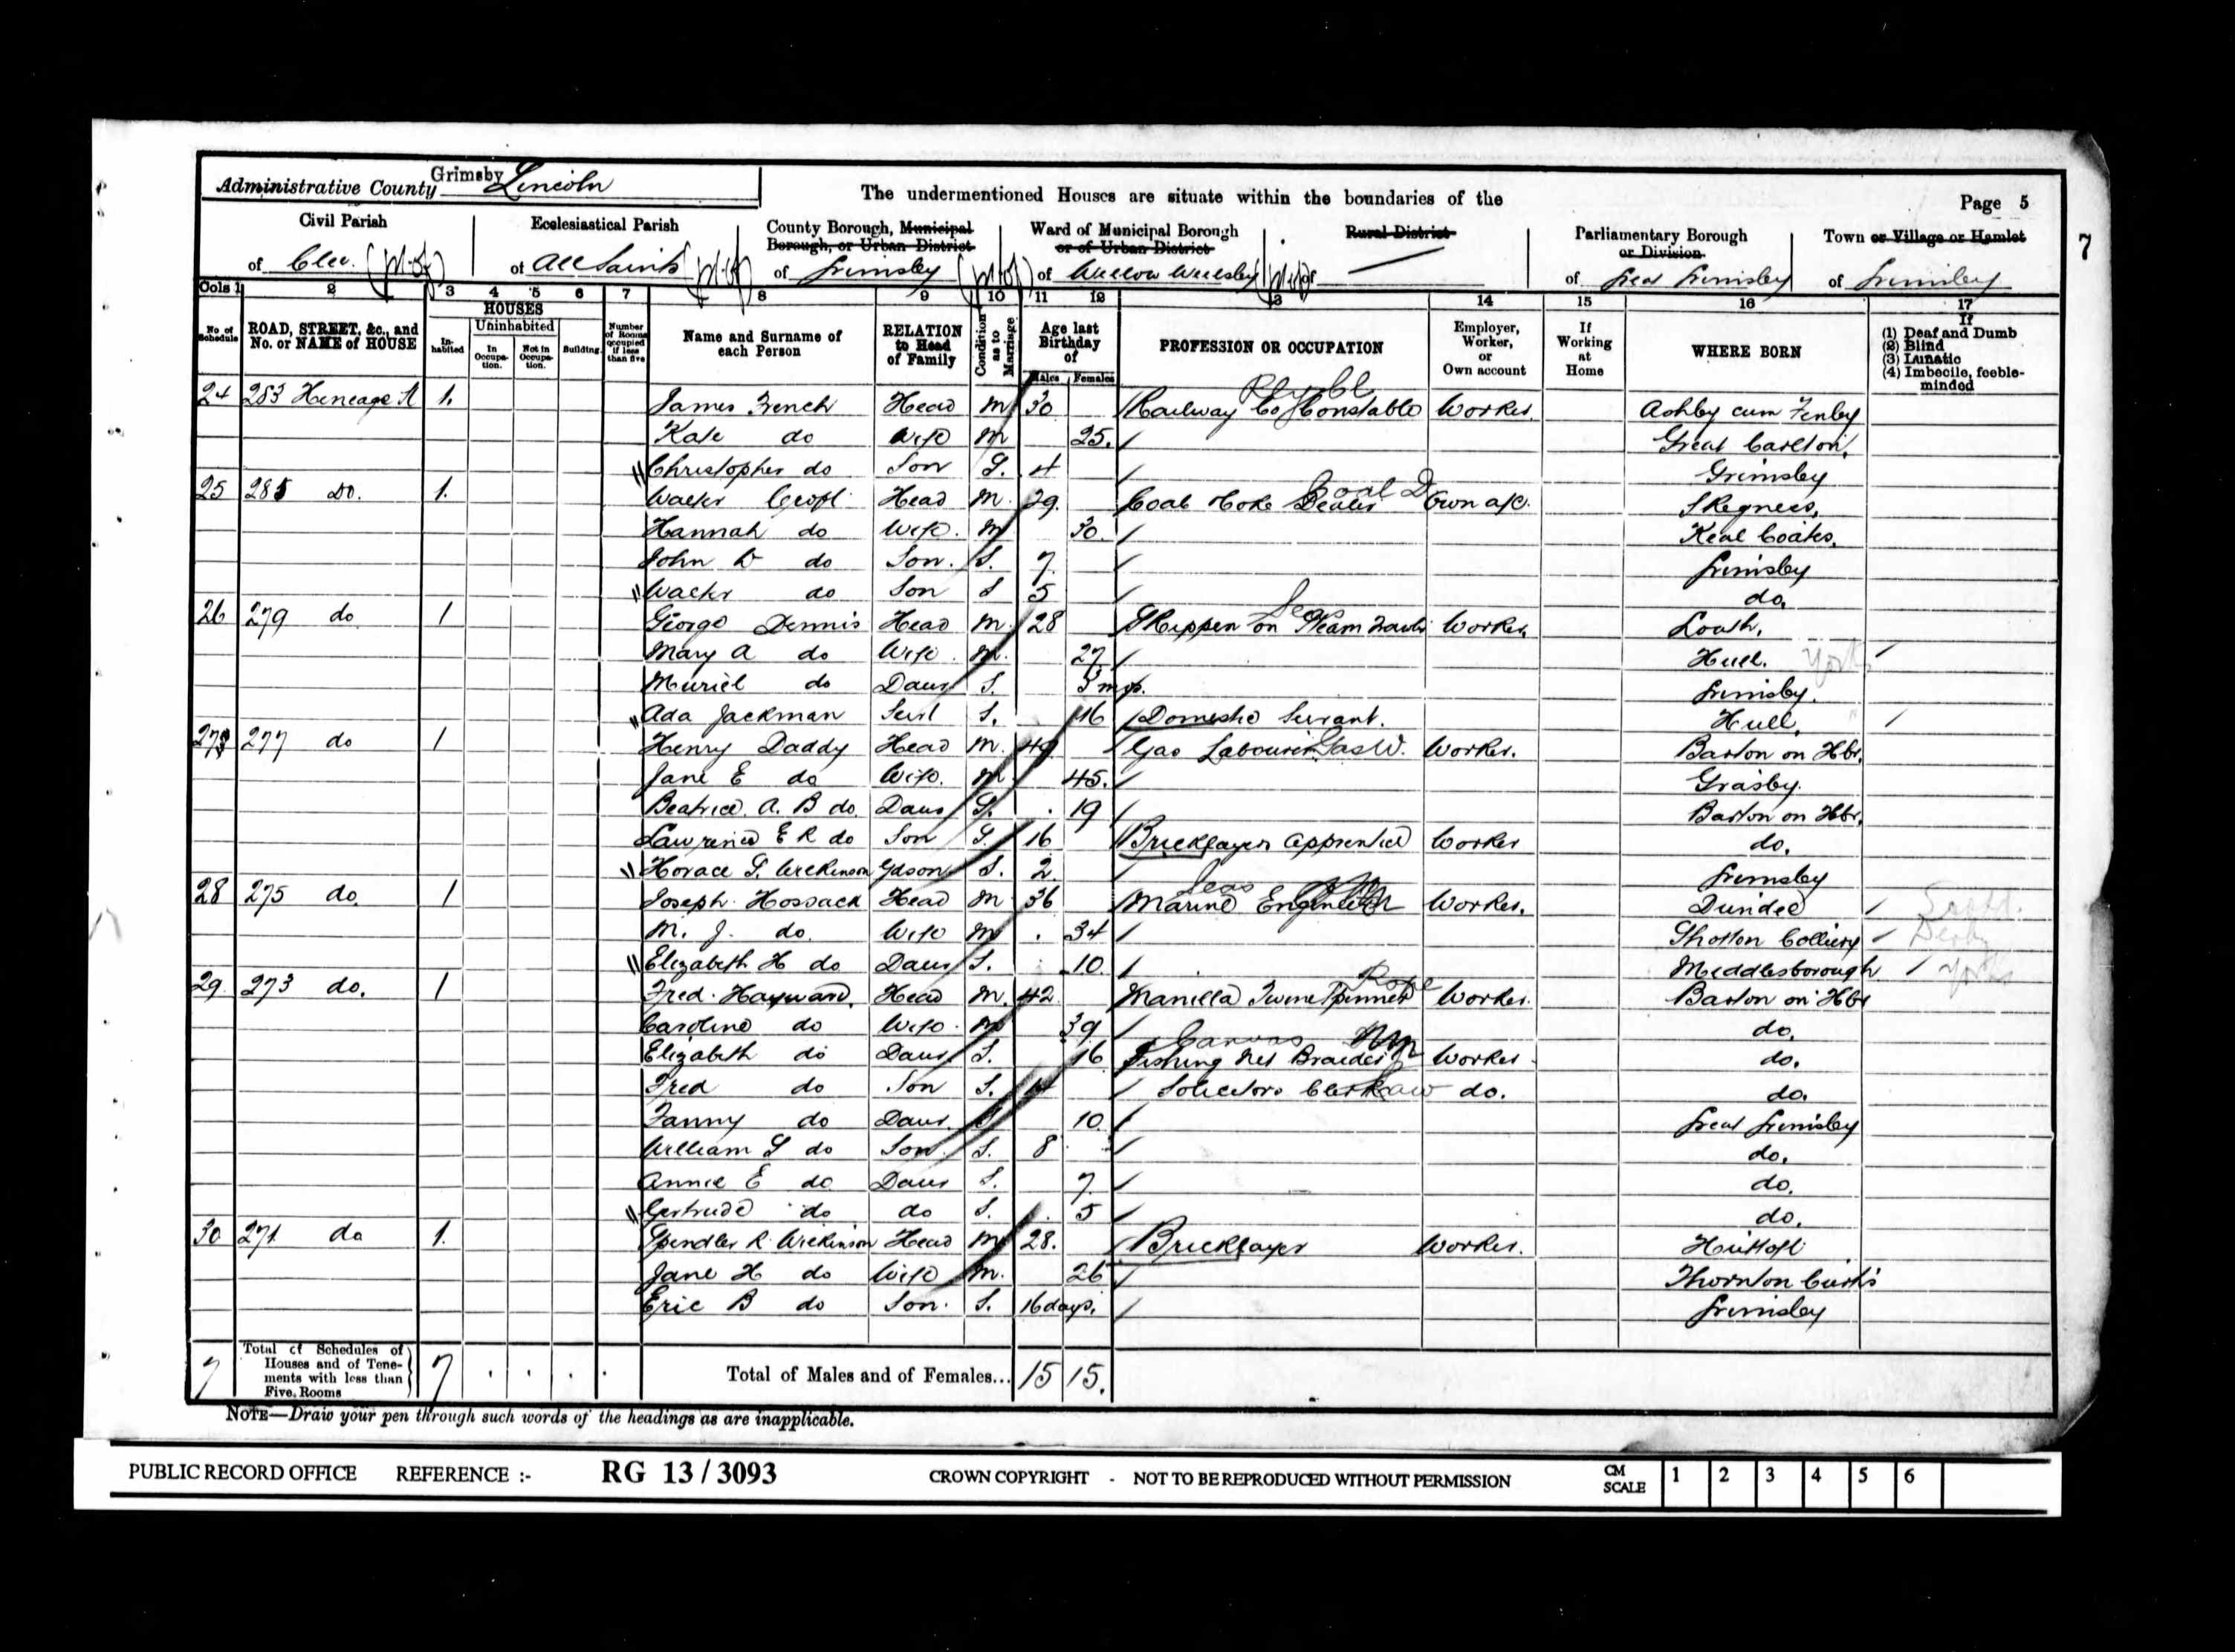 Administrative County Grimsby Lincoln
The undermentioned Houses are situate within the boundaries of the
Page 5
7
Civil Parish of Clee (pt of)
Ecclesiastical Parish of All Saints (pt of)
County Borough, Municipal Borough, or Urban District of Grimsby (pt of)
Ward of Municipal Borough or of Urban District of Weelsby (pt of)
Rural District of
Parliamentary Borough or Division of Great Grimsby
Town or Village or Hamlet of Grimsby
Cols 1 2 3 4 5 6 7 8 9 10 11 12 13 14 15 16 17
No of Schedule
ROAD, STREET, &c., and No. or NAME of HOUSE
HOUSES
Inhabited
Uninhabited
In Occupation.
Not in Occupation.
Building.
Number of Rooms occupied if less than five
Name and Surname of each Person
RELATION to Head of Family
Condition as to Marriage
Age last Birthday of
Males Females
PROFESSION OR OCCUPATION
Employer, Worker, or Own account
If Working at Home
WHERE BORN
If
(1) Deaf and Dumb
(2) Blind
(3) Lunatic
(4) Imbecile, feeble-minded
24 283 Heneage St 1. James French Head M 30 Railway Co Constable Worker Ashby cum Fenby
Kate do Wife M 25. Great Carlton.
Christopher do Son S. 4 Grimsby
25 285 Do. 1. Walter Croft Head M. 29. Coal Coke Dealer Coal D Own a/c. Skegness.
Hannah do Wife. M 30. Keal Coates.
John W do Son. S. 7. Grimsby
Walter do Son S 5 do.
26 279 do 1 George Dennis Head M. 28 Skipper on Steam Trawler Seas Worker. Louth.
Mary A do Wife M. 27 Hull. Yorks
Muriel do Daur S. 3 mos. Grimsby.
Ada Jackman Serv S. 16 Domestic Servant. Hull.
27 277 do 1 Henry Daddy Head M. 49 Gas Labourer Gas W. Worker. Barton on Hbr.
Jane E do Wife. M 45. Grasby.
Beatrice. A. B do. Daur S. 19 Barton on Hbr.
Lawrence E R do Son S. 16 Bricklayers Apprentice Worker do.
Horace S. Wilkinson Gdson S. 2. Grimsby
28 275 do. 1 Joseph Hossack Head M 36 Marine Engineer Seas Worker. Dundee Scotd.
M. J. do. Wife M 34 Shotton Colliery
Elizabeth H do Daur S. 10. Middlesborough Yorks
29. 273 do. 1 Fred. Hayward. Head M. 42 Manilla Twine Spinner Rope Worker. Barton on Hbr
Caroline do Wife. M 39 do.
Elizabeth do Daur S. 16 Fishing Net Braider Canvas Worker do.
Fred do Son S. Solicitors Clerk Law do. do.
Fanny do Daur. S 10. Great Grimsby
William S do Son S. 8 do.
Annie E do Daur S. 7. do.
Gertrude do do S. 5 do.
30 271 do 1. Spendler R. Wilkinson Head M 28. Bricklayer Worker. Huttoft
Jane H do Wife M. 26 Thornton Curtis
Eric B do Son. S. 16 days. Grimsby
7 Total of Schedules of Houses and of Tenements with less than Five Rooms 7 Total of Males and of Females... 15 15.
NOTE—Draw your pen through such words of the headings as are inapplicable.
PUBLIC RECORD OFFICE REFERENCE :- RG 13 / 3093 CROWN COPYRIGHT - NOT TO BE REPRODUCED WITHOUT PERMISSION CM SCALE 1 2 3 4 5 6